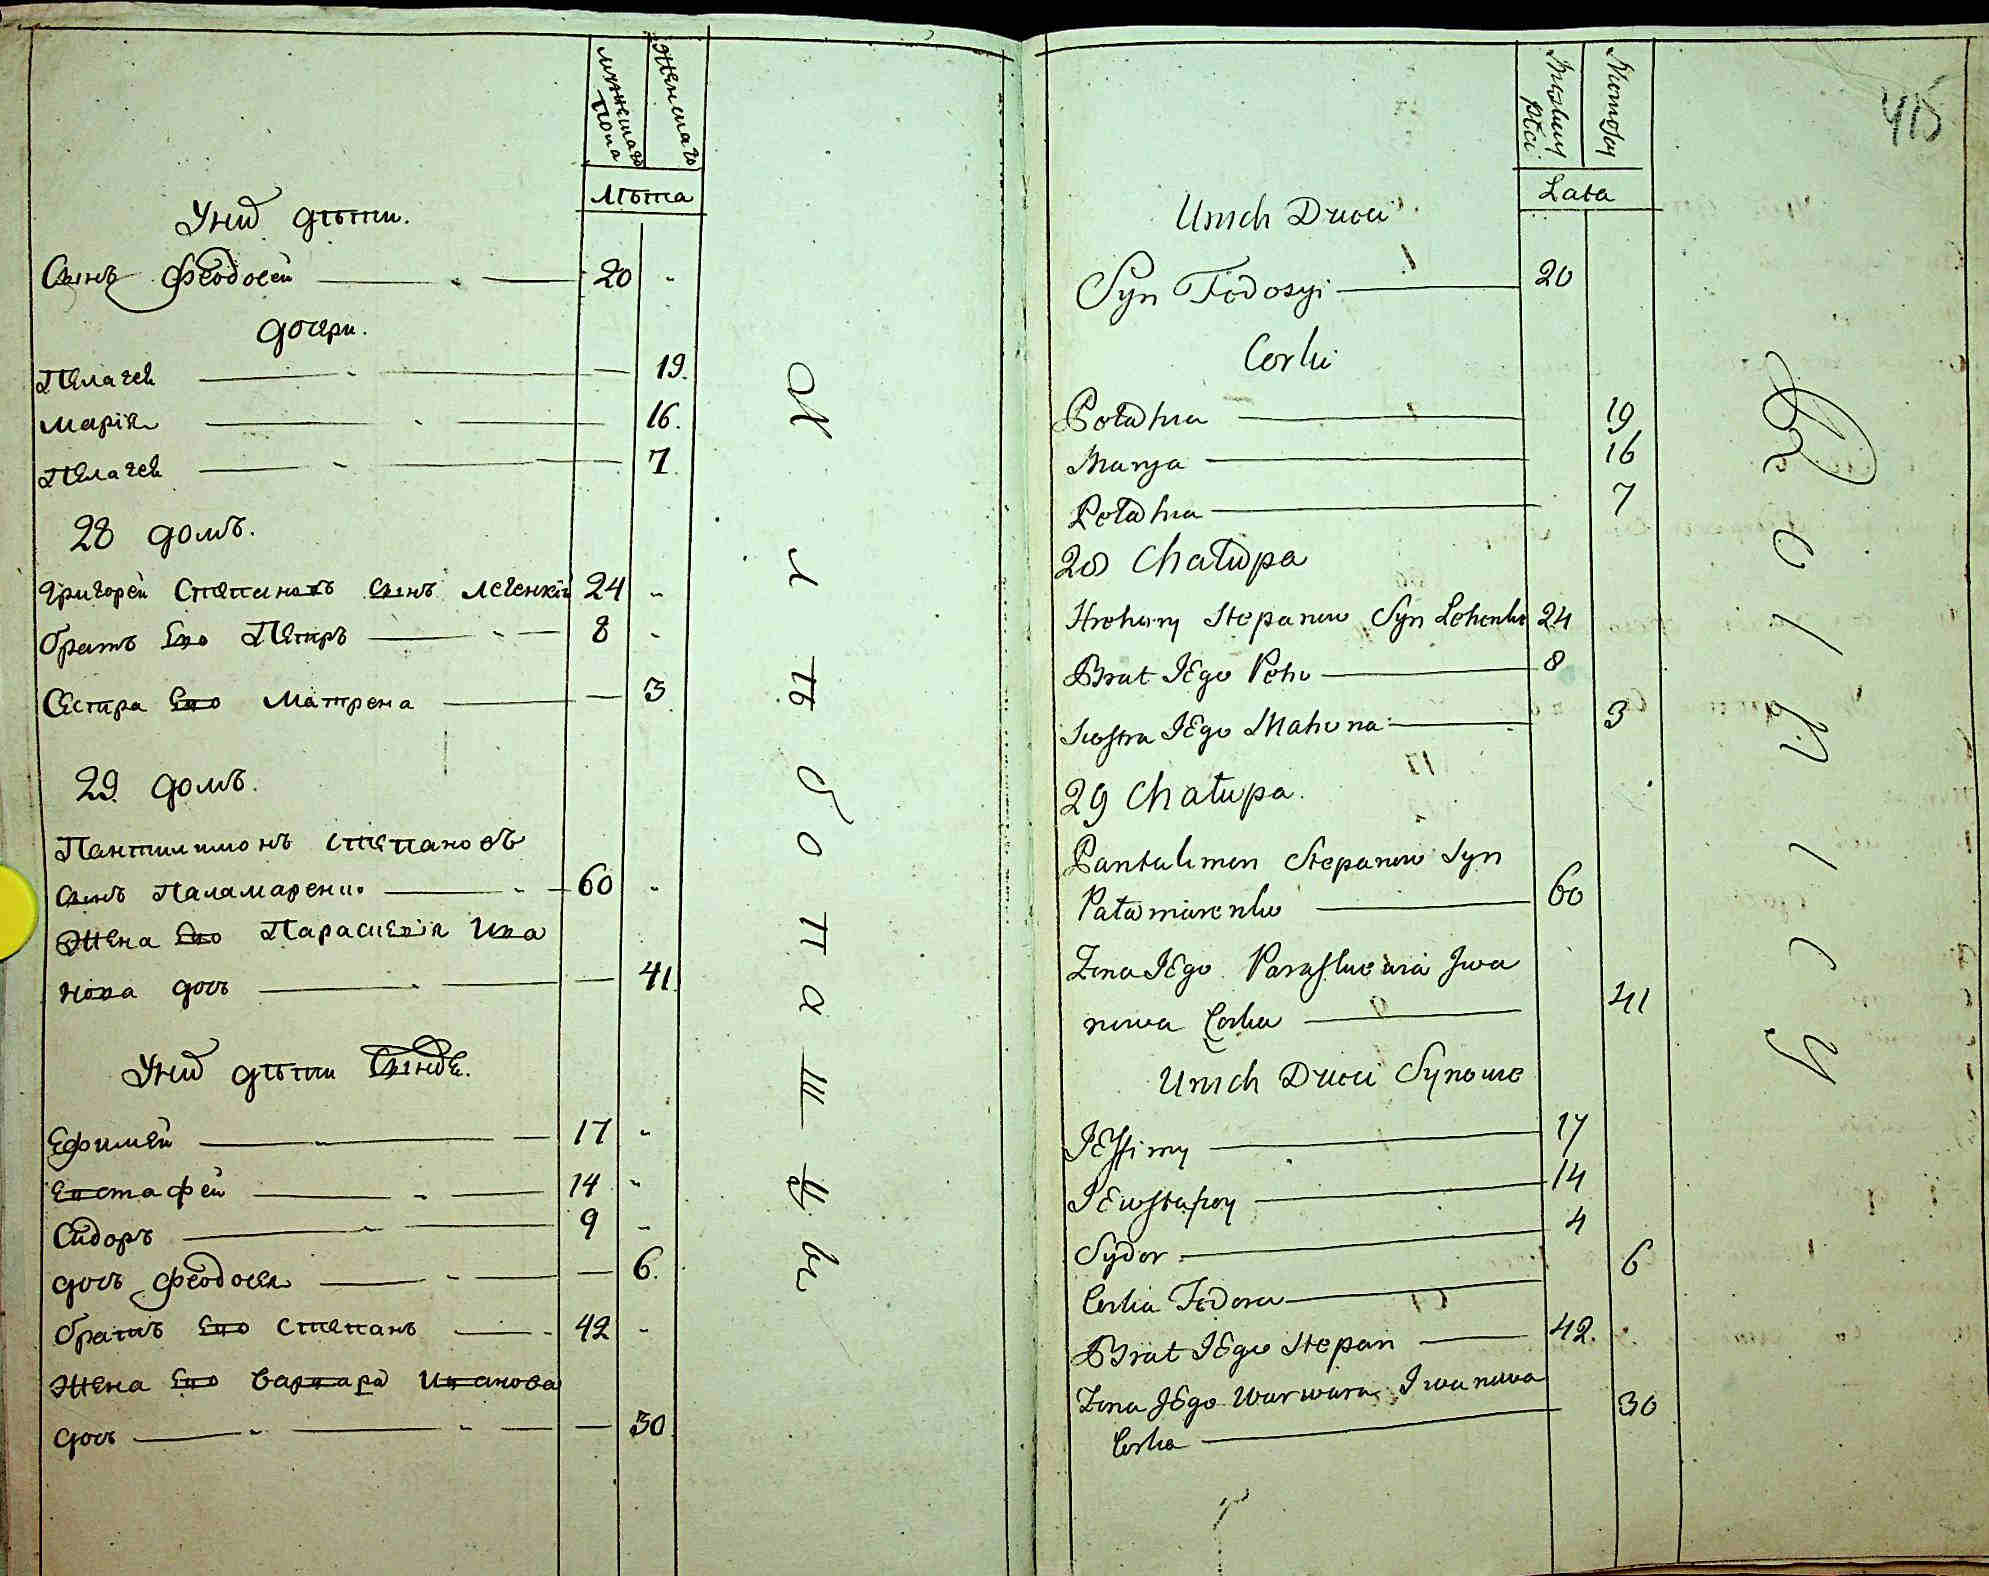 мужескаго пола
женскаго
Лѣта
У них дѣти.
Сынъ Феодосей 20
дочери.
Пелагея 19.
Марія 16.
Пелагея 7.
28 домъ.
Григорей Степановъ сынъ Легенкій 24
братъ Его Петръ 8
Сестра Его Матрена 3
29 домъ.
Пантилимонъ Степановъ
сынъ Паламаренко 60
Жена Его Параскевія Ива
нова дочь 41.
У них дѣти Сынове.
Ефимей 17
Евстафей 14
Сидоръ 9
дочь Феодосея 6.
братъ Его Степанъ 42
Жена Его Варвара Иванова
дочь 30.
Хлѣбопашцы
415
Męzkiey płci
Lata
Unich Dzieci
Syn Fedosyi 20
Corki
Połahia 19
Marya 16
Połahia 7
28 Chałupa
Hrehory Stepanow Syn Lehenki 24
Brat IEgo Petro 8
Siostra IEgo Matrona 3
29 Chałupa.
Pantalimon Stepanow Syn
Pałamarenko 60
Zona IEgo Paraskewia Iwa
nowa Corka 41
Unich Dzieci Synowie
IEffimy 17
IEwstafiey 14
Sydor 4
Corka Fedora 6
Brat IEgo Stepan 42.
Zona IEgo Warwara Iwanowa
Corka 30
Rolnicy